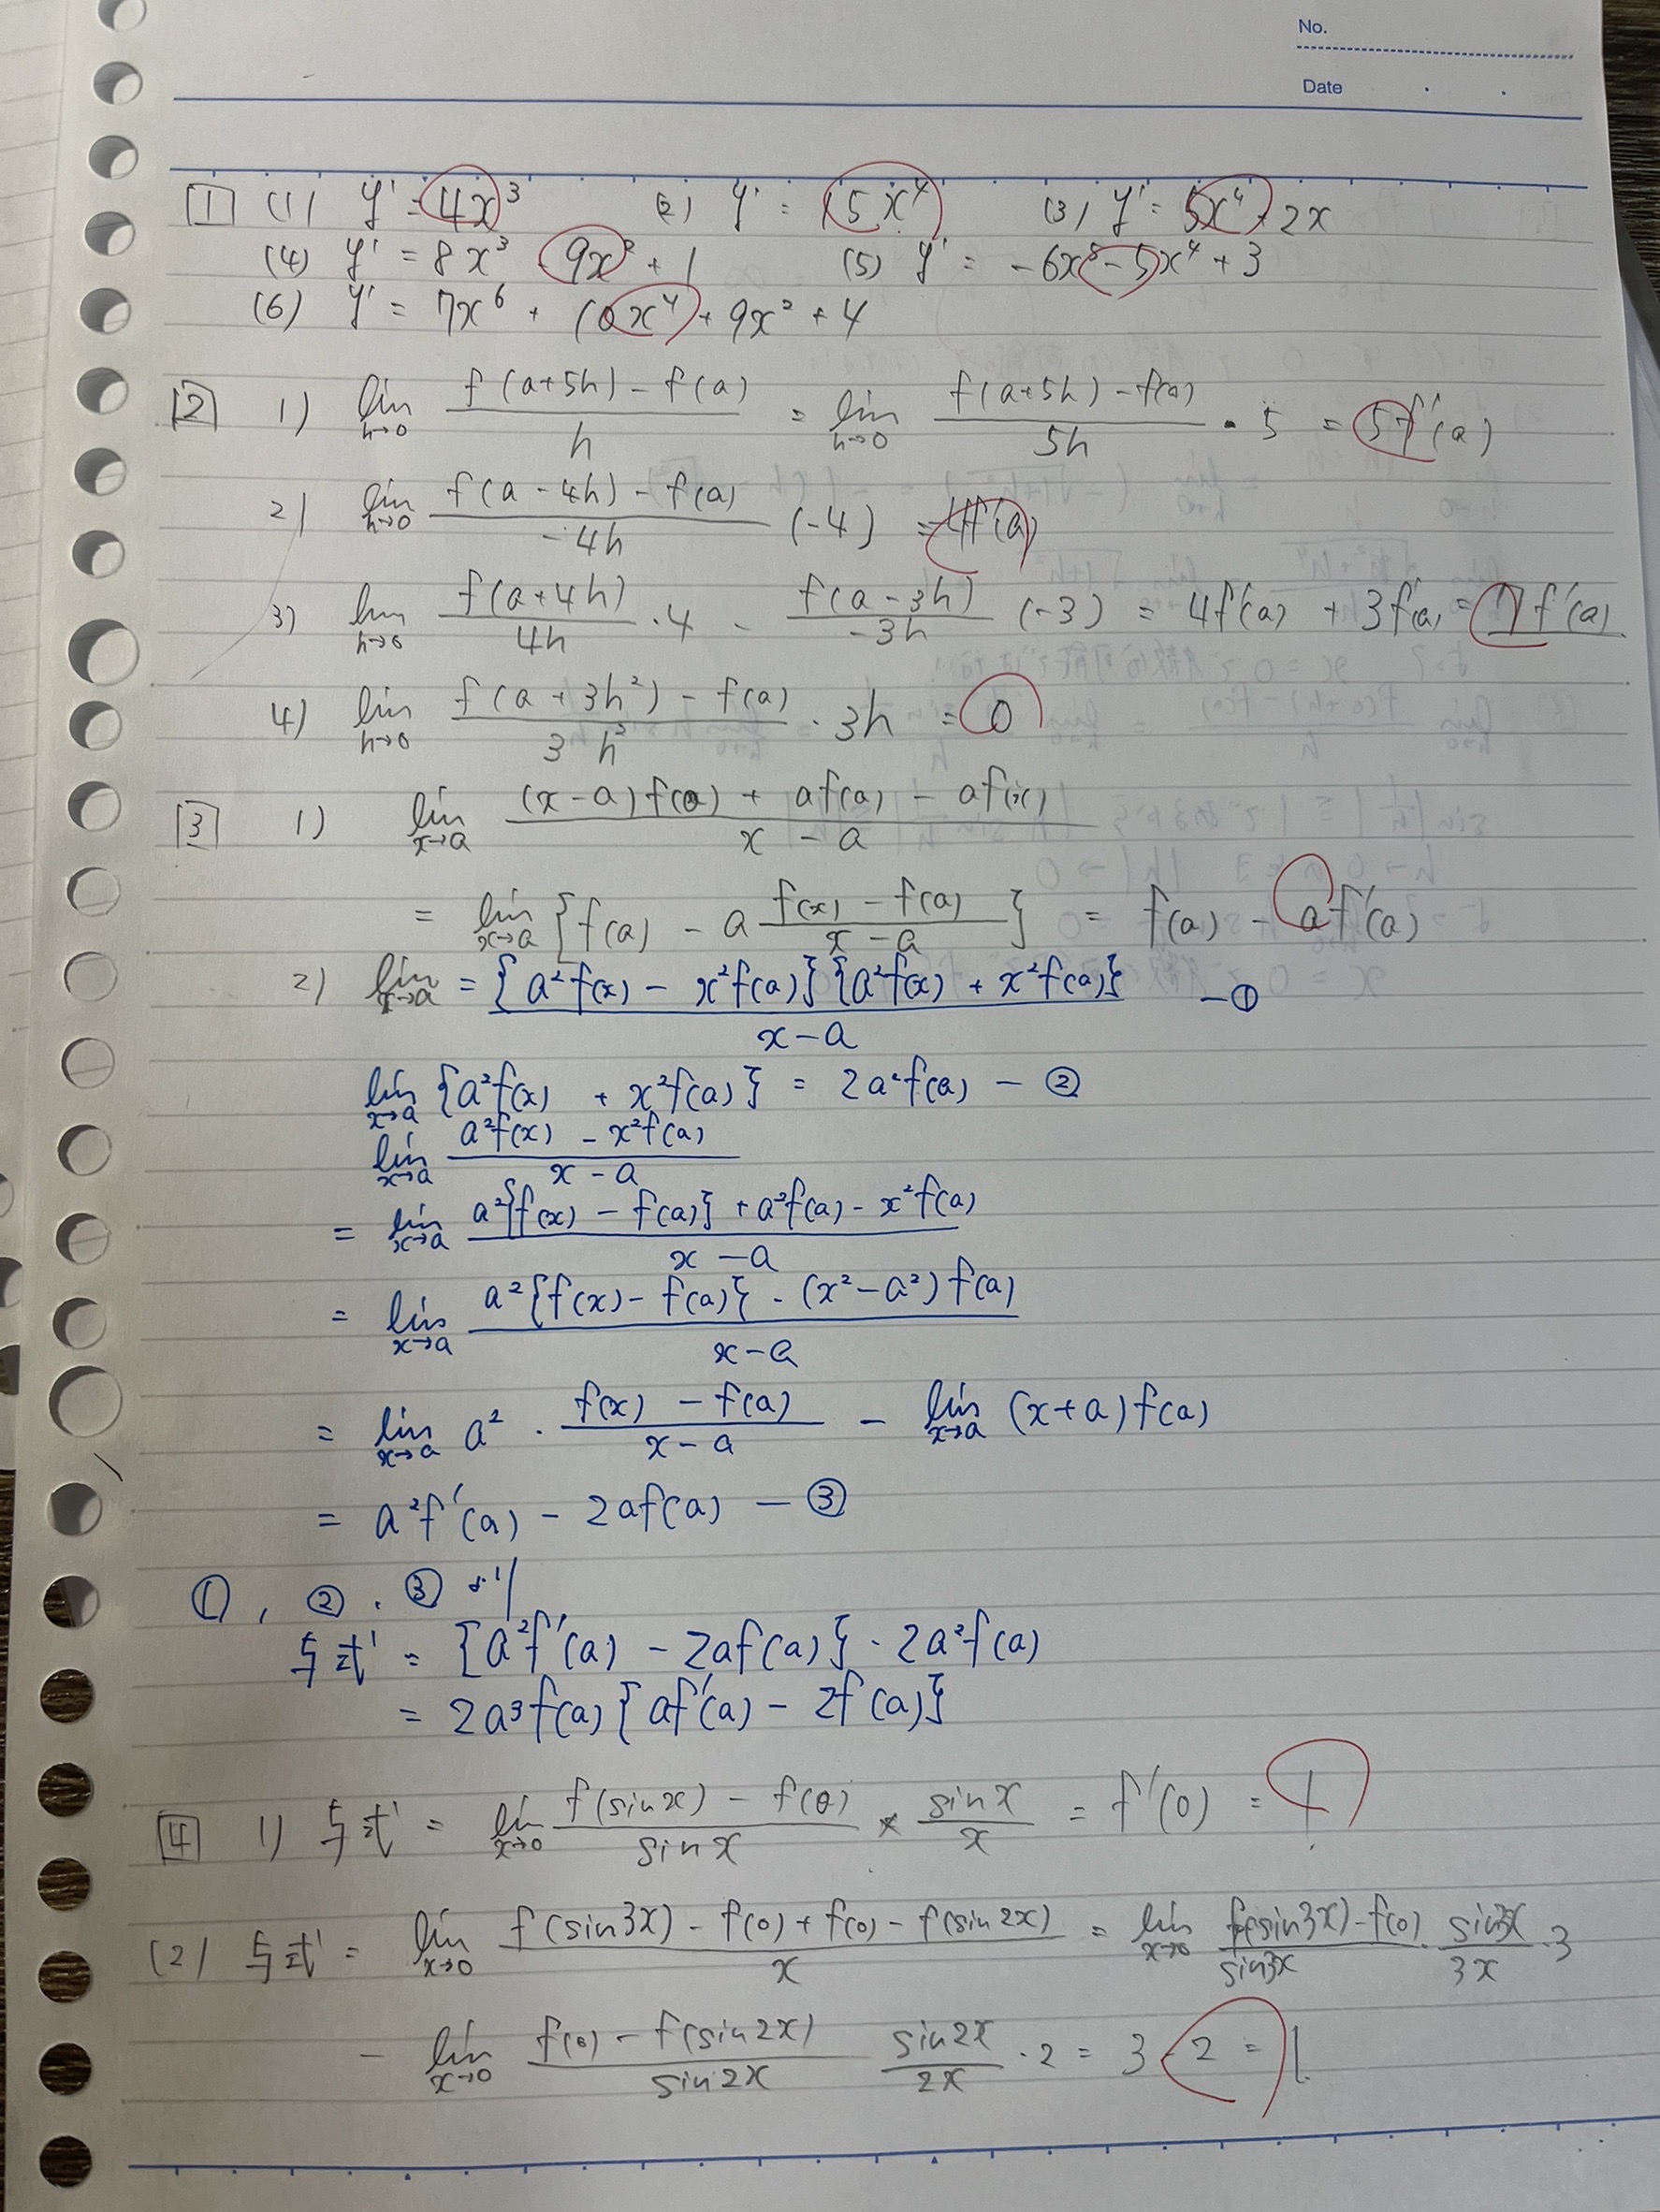 No.
Date
[1] (1) y' = 4x³ (2) y' = 15x⁴ (3) y' = 5x⁴ + 2x
(4) y' = 8x³ - 9x² + 1 (5) y' = -6x⁵ - 5x⁴ + 3
(6) y' = 7x⁶ + 10x⁴ + 9x² + 4
[2] 1) lim_{h→0} (f(a+5h) - f(a))/h = lim_{h→0} (f(a+5h) - f(a))/5h · 5 = 5f'(a)
2) lim_{h→0} (f(a-4h) - f(a))/-4h (-4) = -4f'(a)
3) lim_{h→0} f(a+4h)/4h · 4 - f(a-3h)/-3h (-3) = 4f'(a) + 3f'(a) = 7f'(a)
4) lim_{h→0} (f(a+3h²) - f(a))/3h² · 3h = 0
[3] 1) lim_{x→a} ((x-a)f(a) + af(a) - af(x))/(x-a)
= lim_{x→a} {f(a) - a (f(x) - f(a))/(x-a)} = f(a) - af'(a)
2) lim_{x→a} = {a²f(x) - x²f(a)}{a²f(x) + x²f(a)}/(x-a) - ①
lim_{x→a} {a²f(x) + x²f(a)} = 2a²f(a) - ②
lim_{x→a} (a²f(x) - x²f(a))/(x-a)
= lim_{x→a} (a²{f(x) - f(a)} + a²f(a) - x²f(a))/(x-a)
= lim_{x→a} (a²{f(x) - f(a)} - (x²-a²)f(a))/(x-a)
= lim_{x→a} a² · (f(x) - f(a))/(x-a) - lim_{x→a} (x+a)f(a)
= a²f'(a) - 2af(a) - ③
①, ②, ③ より
与式 = {a²f'(a) - 2af(a)} · 2a²f(a)
= 2a³f(a){af'(a) - 2f(a)}
[4] 1) 与式 = lim_{x→0} (f(sinx) - f(0))/sinx × sinx/x = f'(0) = 1
(2) 与式 = lim_{x→0} (f(sin3x) - f(0) + f(0) - f(sin2x))/x = lim_{x→0} (f(sin3x) - f(0))/sin3x · sin3x/3x · 3
- lim_{x→0} (f(0) - f(sin2x))/sin2x sin2x/2x · 2 = 3 - 2 = 1